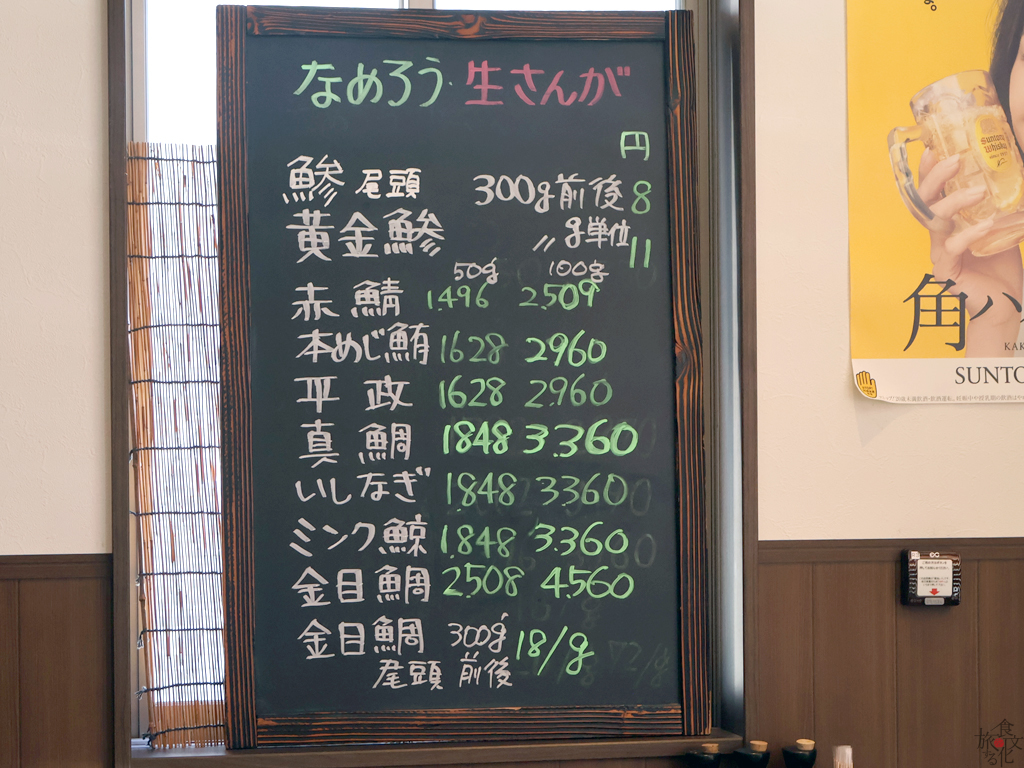 なめろう・生さんが
円
鯵 尾頭 300g前後 8
黄金鯵 〃 g単位 11
50g 100g
赤鯖 1.496 2.509
本めじ鮪 1628 2960
平政 1628 2960
真鯛 1848 3.360
いしなぎ 1848 3360
ミンク鯨 1.848 3.360
金目鯛 2.508 4.560
金目鯛 300g 18/g
尾頭 前後
Suntory
whisky
角ハ
KAK
SUNTO
食文化
旅する